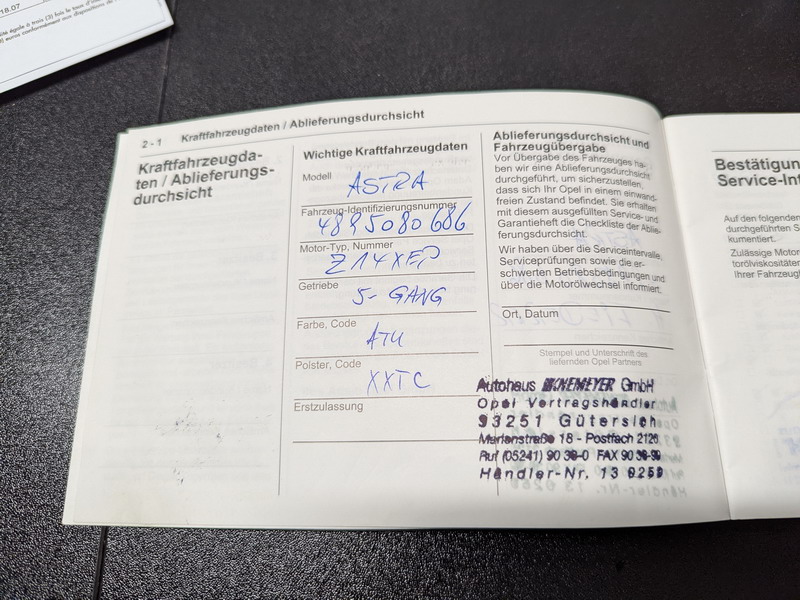 18.07
2 - 1 Kraftfahrzeugdaten / Ablieferungsdurchsicht
Kraftfahrzeugda-
ten / Ablieferungs-
durchsicht
Wichtige Kraftfahrzeugdaten
Modell
ASTRA
Fahrzeug-Identifizierungsnummer
48R5080686
Motor-Typ, Nummer
Z14XEP
Getriebe
5-GANG
Farbe, Code
Polster, Code
XXTC
Erstzulassung
Ablieferungsdurchsicht und
Fahrzeugübergabe
Vor Übergabe des Fahrzeuges ha-
ben wir eine Ablieferungsdurchsicht
durchgeführt, um sicherzustellen,
dass sich Ihr Opel in einem einwand-
freien Zustand befindet. Sie erhalten
mit diesem ausgefüllten Service- und
Garantieheft die Checkliste der Ablie-
ferungsdurchsicht.
Wir haben über die Serviceintervalle,
Serviceprüfungen sowie die er-
schwerten Betriebsbedingungen und
über die Motorölwechsel informiert.
Ort, Datum
Stempel und Unterschrift des
liefernden Opel Partners
Autohaus GmbH
Opel Vertragshändler
33251 Gütersloh
Marienstraße 18 - Postfach 2126
Ruf (05241) 90 36-0 FAX 90 36-99
Händler-Nr. 13 0259
Bestätigun
Service-Int
Auf den folgenden
durchgeführten S
kumentiert.
Zulässige Motor
torölviskositäten
Ihrer Fahrzeugt